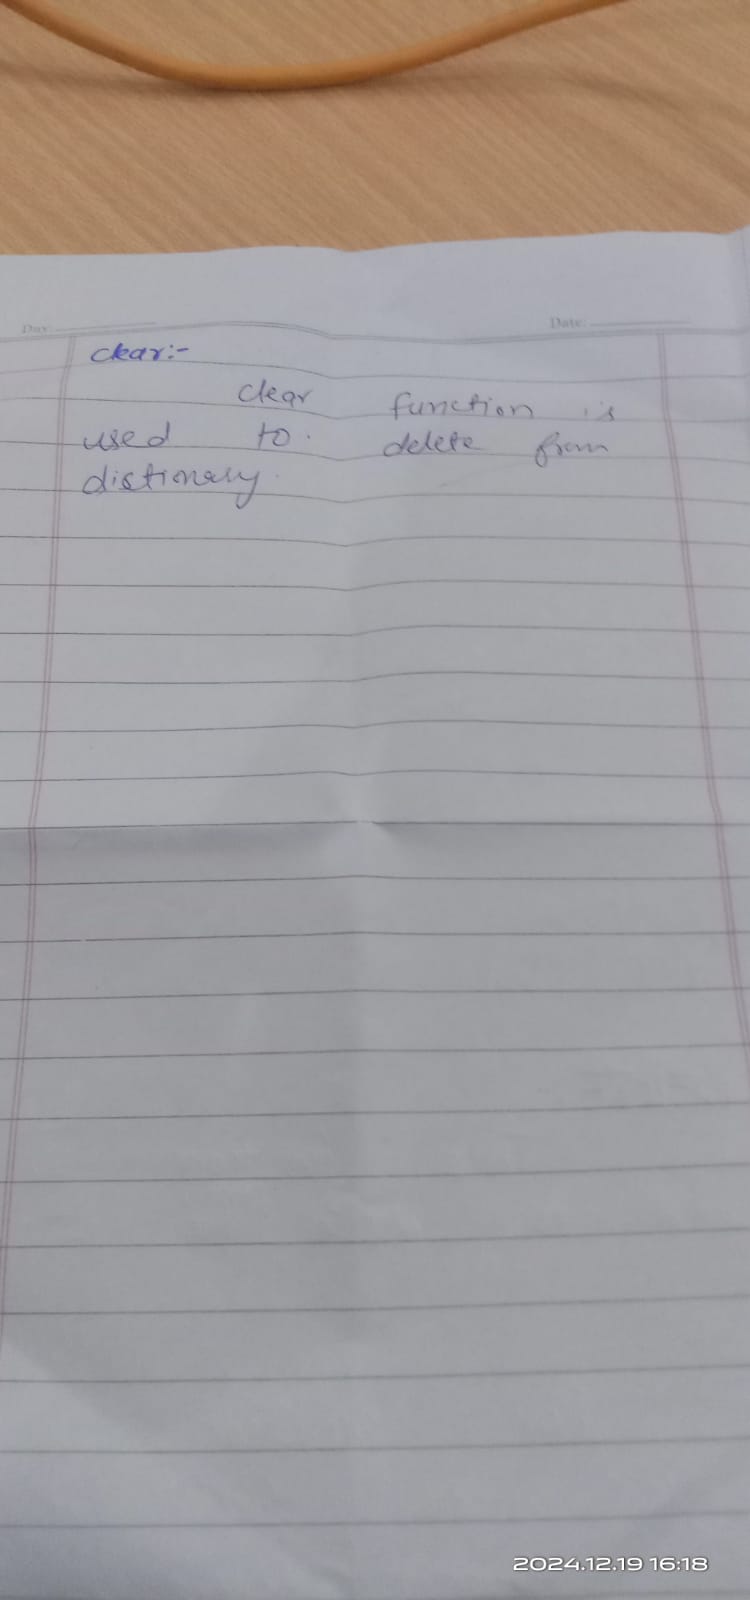 Day:
Date:
clear:-
clear function is
used to. delete from
distionary.
2024.12.19 16:18